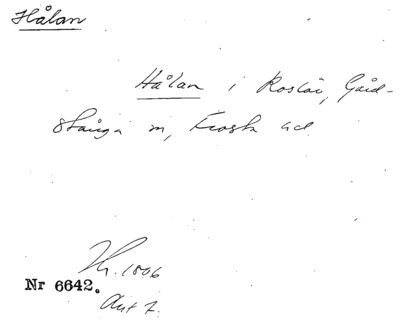 Hålan
Hålan i Roslöv, Gård-
stånga sn, Frosta hd
1806
Nr 6642.
Akt 7.